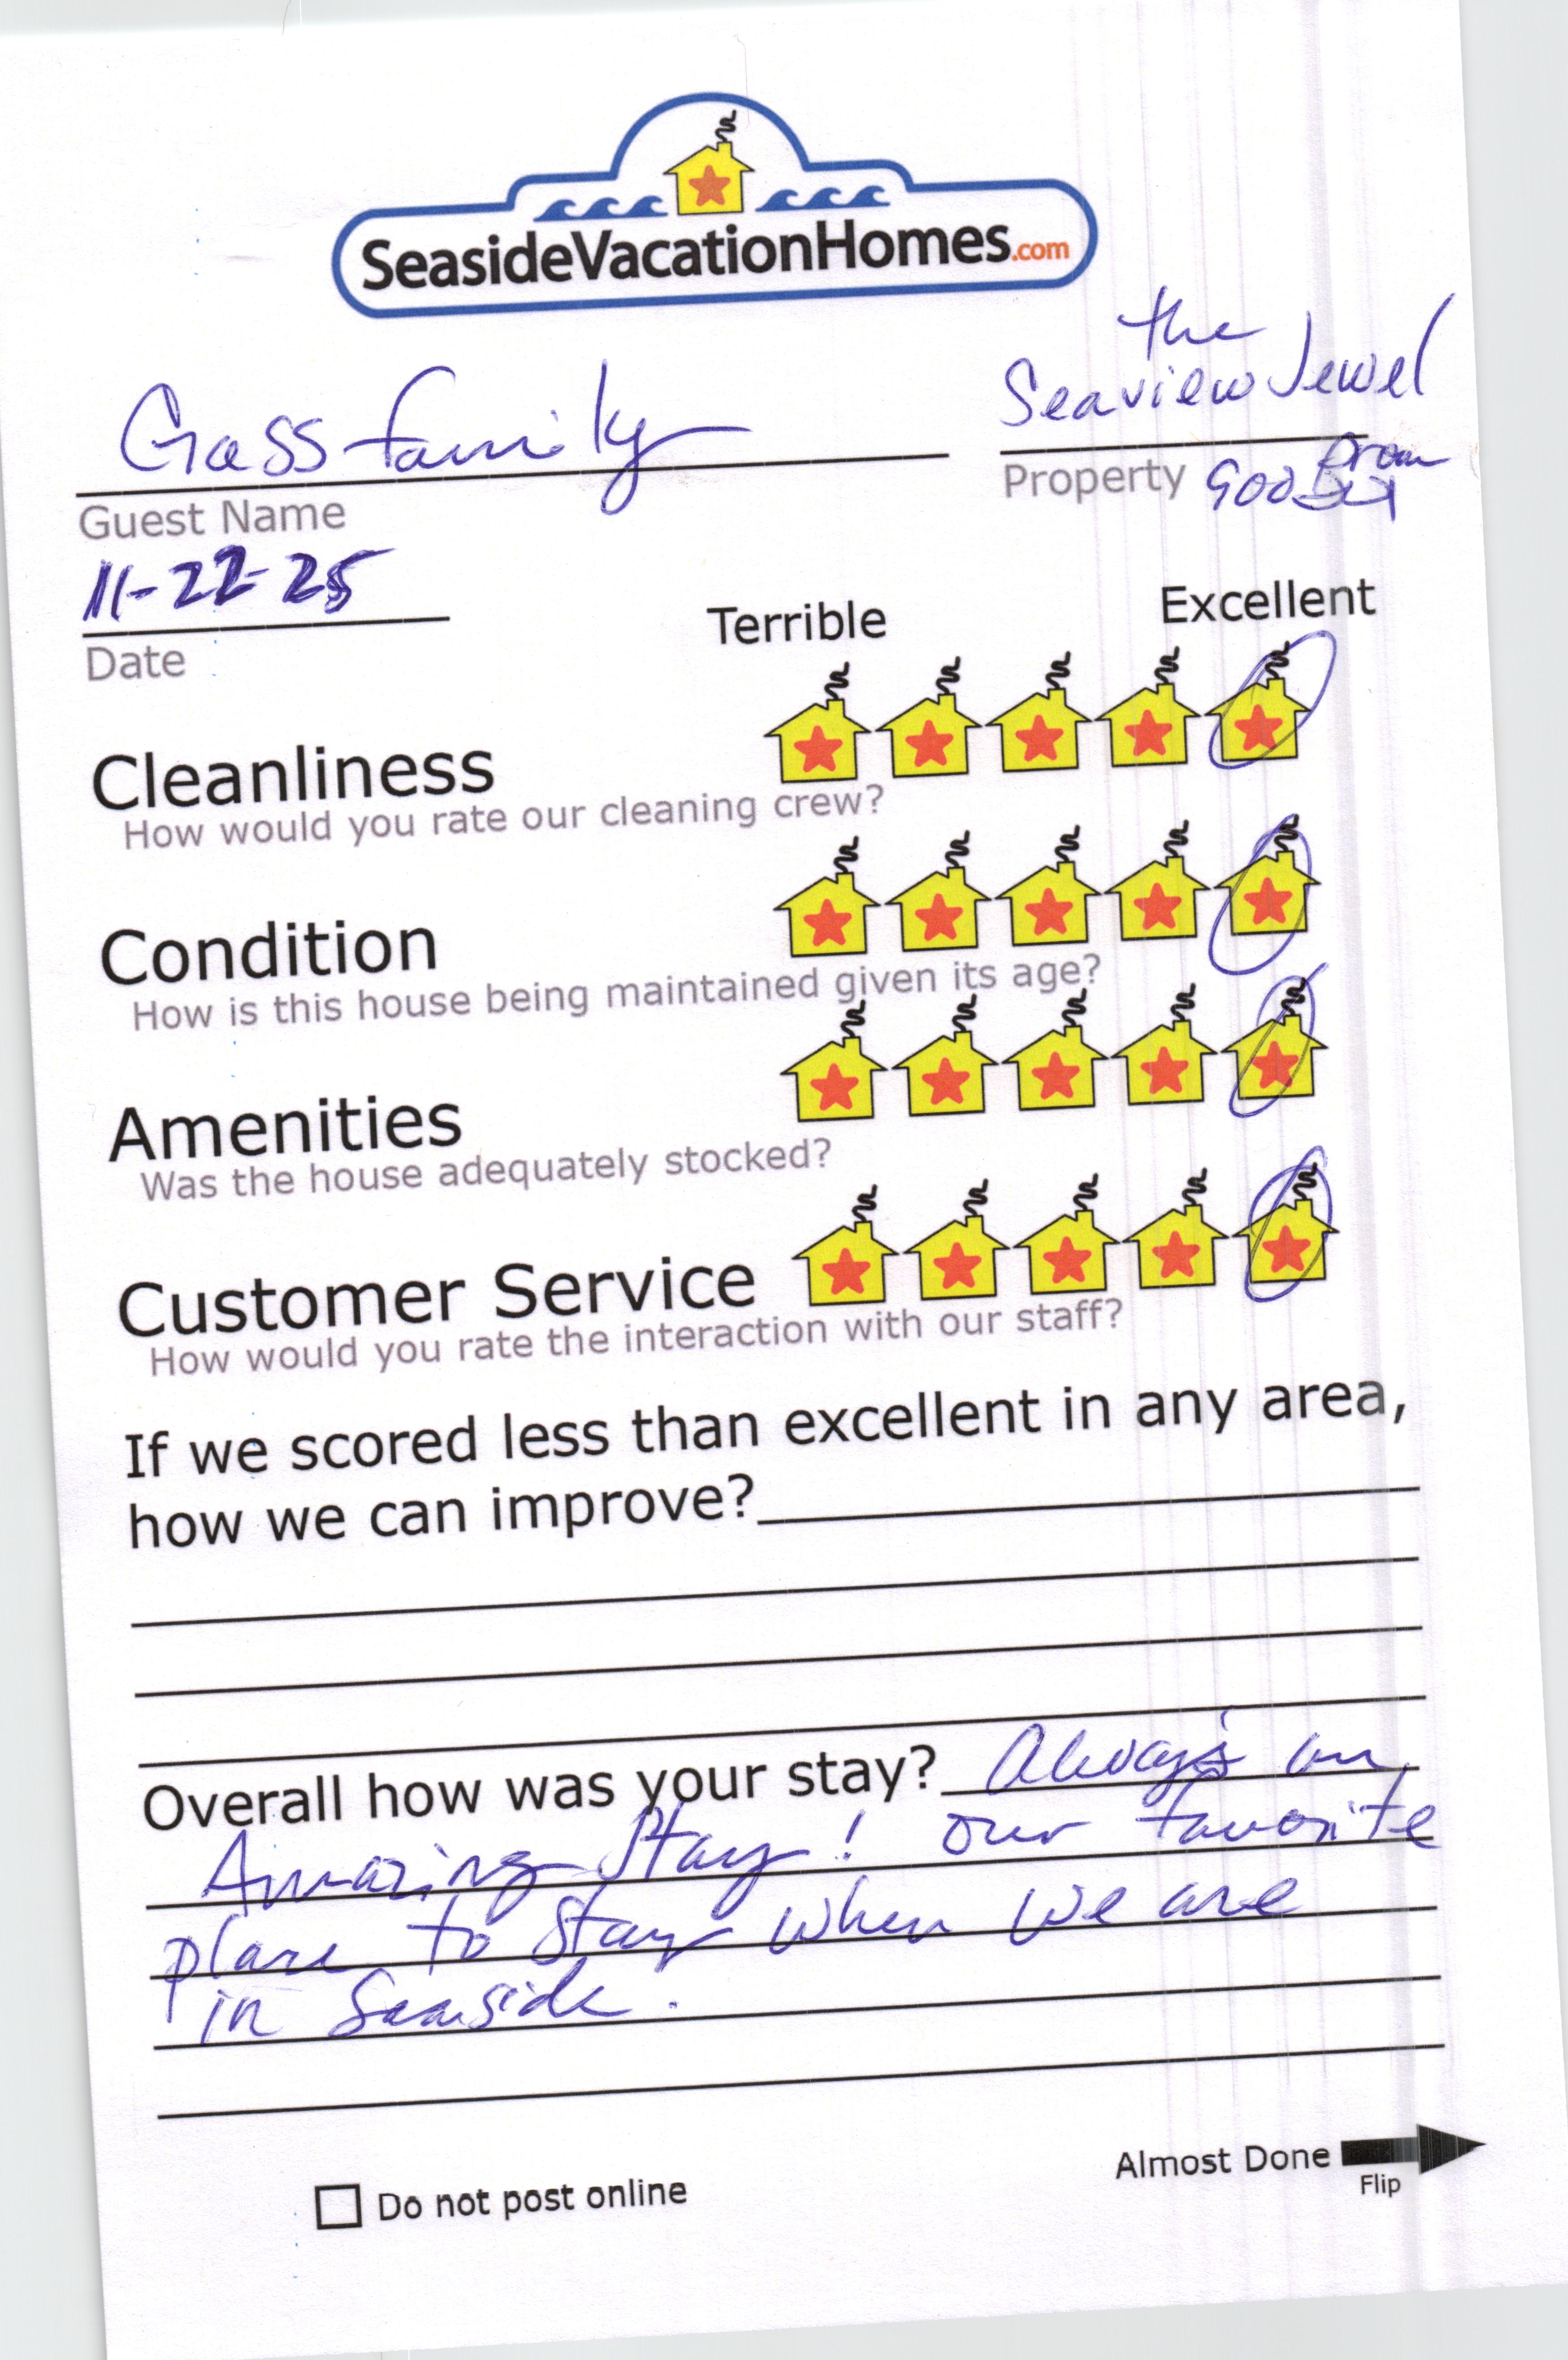 SeasideVacationHomes.com
the
Seaview Jewel
Gass family
Property 900 Prom
Guest Name
11-22-25
Date
Terrible Excellent
Cleanliness
How would you rate our cleaning crew?
Condition
How is this house being maintained given its age?
Amenities
Was the house adequately stocked?
Customer Service
How would you rate the interaction with our staff?
If we scored less than excellent in any area,
how we can improve?
Overall how was your stay? Always an
Amazing Stay! our favorite
place to Stay when we are
in Seaside.
Almost Done
Flip
Do not post online